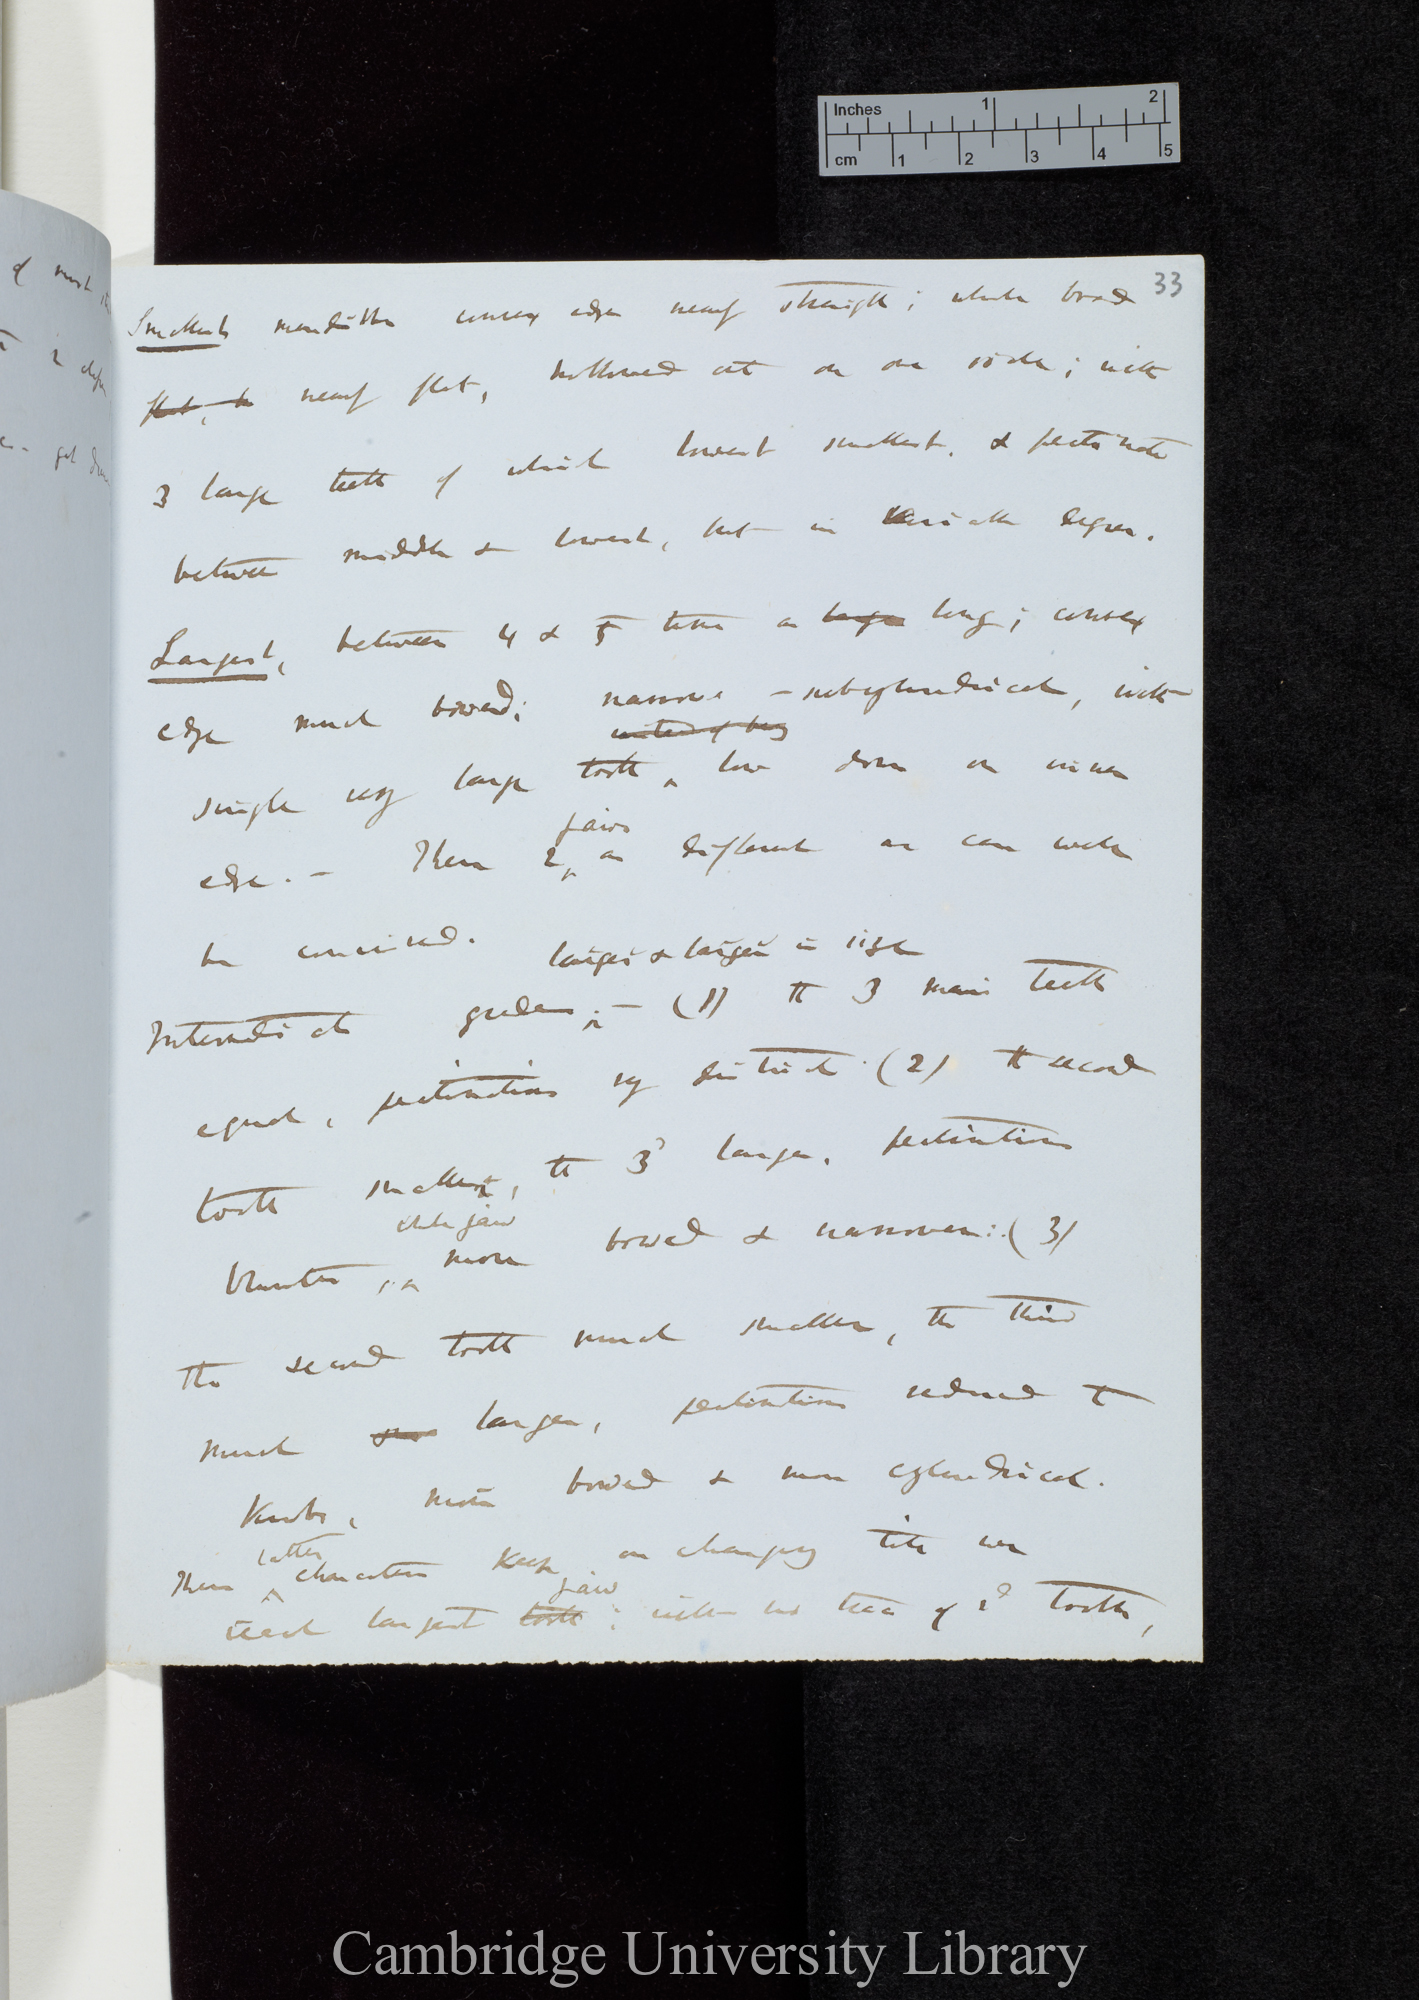 33
Smallest mandible convex edge nearly straight; whole broad
flat, & nearly flat, hollowed out on one side; with
3 large teeth of which lowest smallest, & pectinate
between middle & lowest, but in variable degree.
Largest, between 4 & 5 times as large long; convex
edge much bowed; narrow – subcylindrical, with
instead of being
single very large tooth low down on inner
jaws
edge. – These 2 as different as can well
be conceived.
larger & larger in size
Intermediate grades; – (1) the 3 main teeth
equal, pectinations very distinct. (2) the second
tooth smallest, the 3d larger, pectinations
whole jaw
blunter, more bowed & narrower: (3)
The second tooth much smaller, the third
much larger, pectinations reduced to
knobs, more bowed & more cylindrical.
latter
These characters keep on changing till we
jaw
reach largest tooth; with no trace of 2d tooth,
of much
2
get
Inches 1 2
cm 1 2 3 4 5
Cambridge University Library